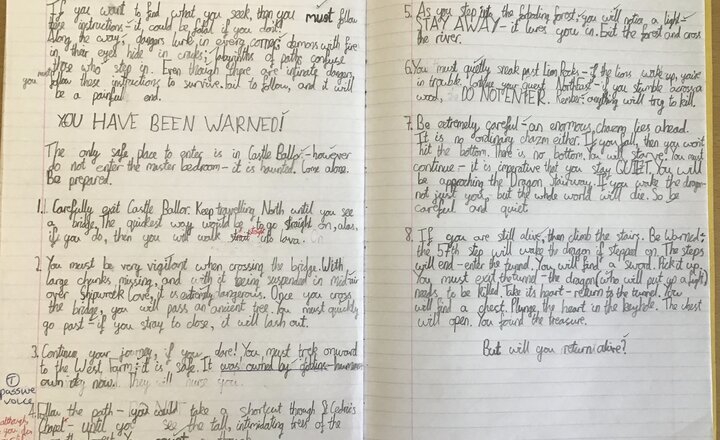 If you want to find what you seek, then you must follow
these instructions - it could be fatal if you don't!
Along the way, dangers lurk in every corner; demons with fire
in their eyes hide in cracks; labyrinths of paths confuse
those who step in. Even though there are infinite dangers,
you must follow these instructions to survive. but to follow, and it will
be a painful end.
YOU HAVE BEEN WARNED!
The only safe place to enter is in Castle Ballor - however
do not enter the master bedroom - it is haunted. Come alone.
Be prepared.
1. Carefully exit Castle Ballor. Keep travelling North until you see
a bridge. The quickest way would be to go straight on, alas,
if you do, then you will walk into lava.
2. You must be very vigilant when crossing the bridge. With
large chunks missing, and with it being suspended in mid-air
over Shipwreck Cove, it is extremely dangerous. Once you cross
the bridge, you will pass an ancient tree. You must quickly
go past - if you stray to close, it will lash out.
3. Continue your journey, if you dare! You must trek onward
to the West Farm: it is safe. It was owned by goblins - humans
own it now. They will nurse you.
① passive
voice
4. Follow the path - you could take a shortcut through St Cedric's
Chapel - until you see the tall, intimidating trees of the
although
you
5. As you step into the foreboding forest, you will notice a light -
STAY AWAY - it lures you in. Exit the forest and cross
the river.
6. You must quietly sneak past Lion Rocks - if the lions wake up, you're
in trouble. Continue your quest Northeast - if you stumble across a
wood, DO NOT ENTER. Remember: everything will try to kill.
7. Be extremely careful - an enormous chasm lies ahead.
It is no ordinary chasm either. If you fall, then you won't
hit the bottom. There is no bottom. You will starve. You must
continue - it is imperative that you stay QUIET. You will
be approaching the Dragon Stairway. If you wake the dragon -
not just you, but the whole world will die. So be
careful and quiet.
8. If you are still alive, then climb the stairs. Be warned:
the 57th step will wake the dragon if stepped on. The steps
will end - enter the tunnel. You will find a sword. Pick it up.
You must exit the tunnel - the dragon (who will put up a fight)
needs to be killed. Take its heart - return to the tunnel. You
will find a chest. Plunge the heart in the keyhole. The chest
will open. You found the treasure.
But will you return alive?